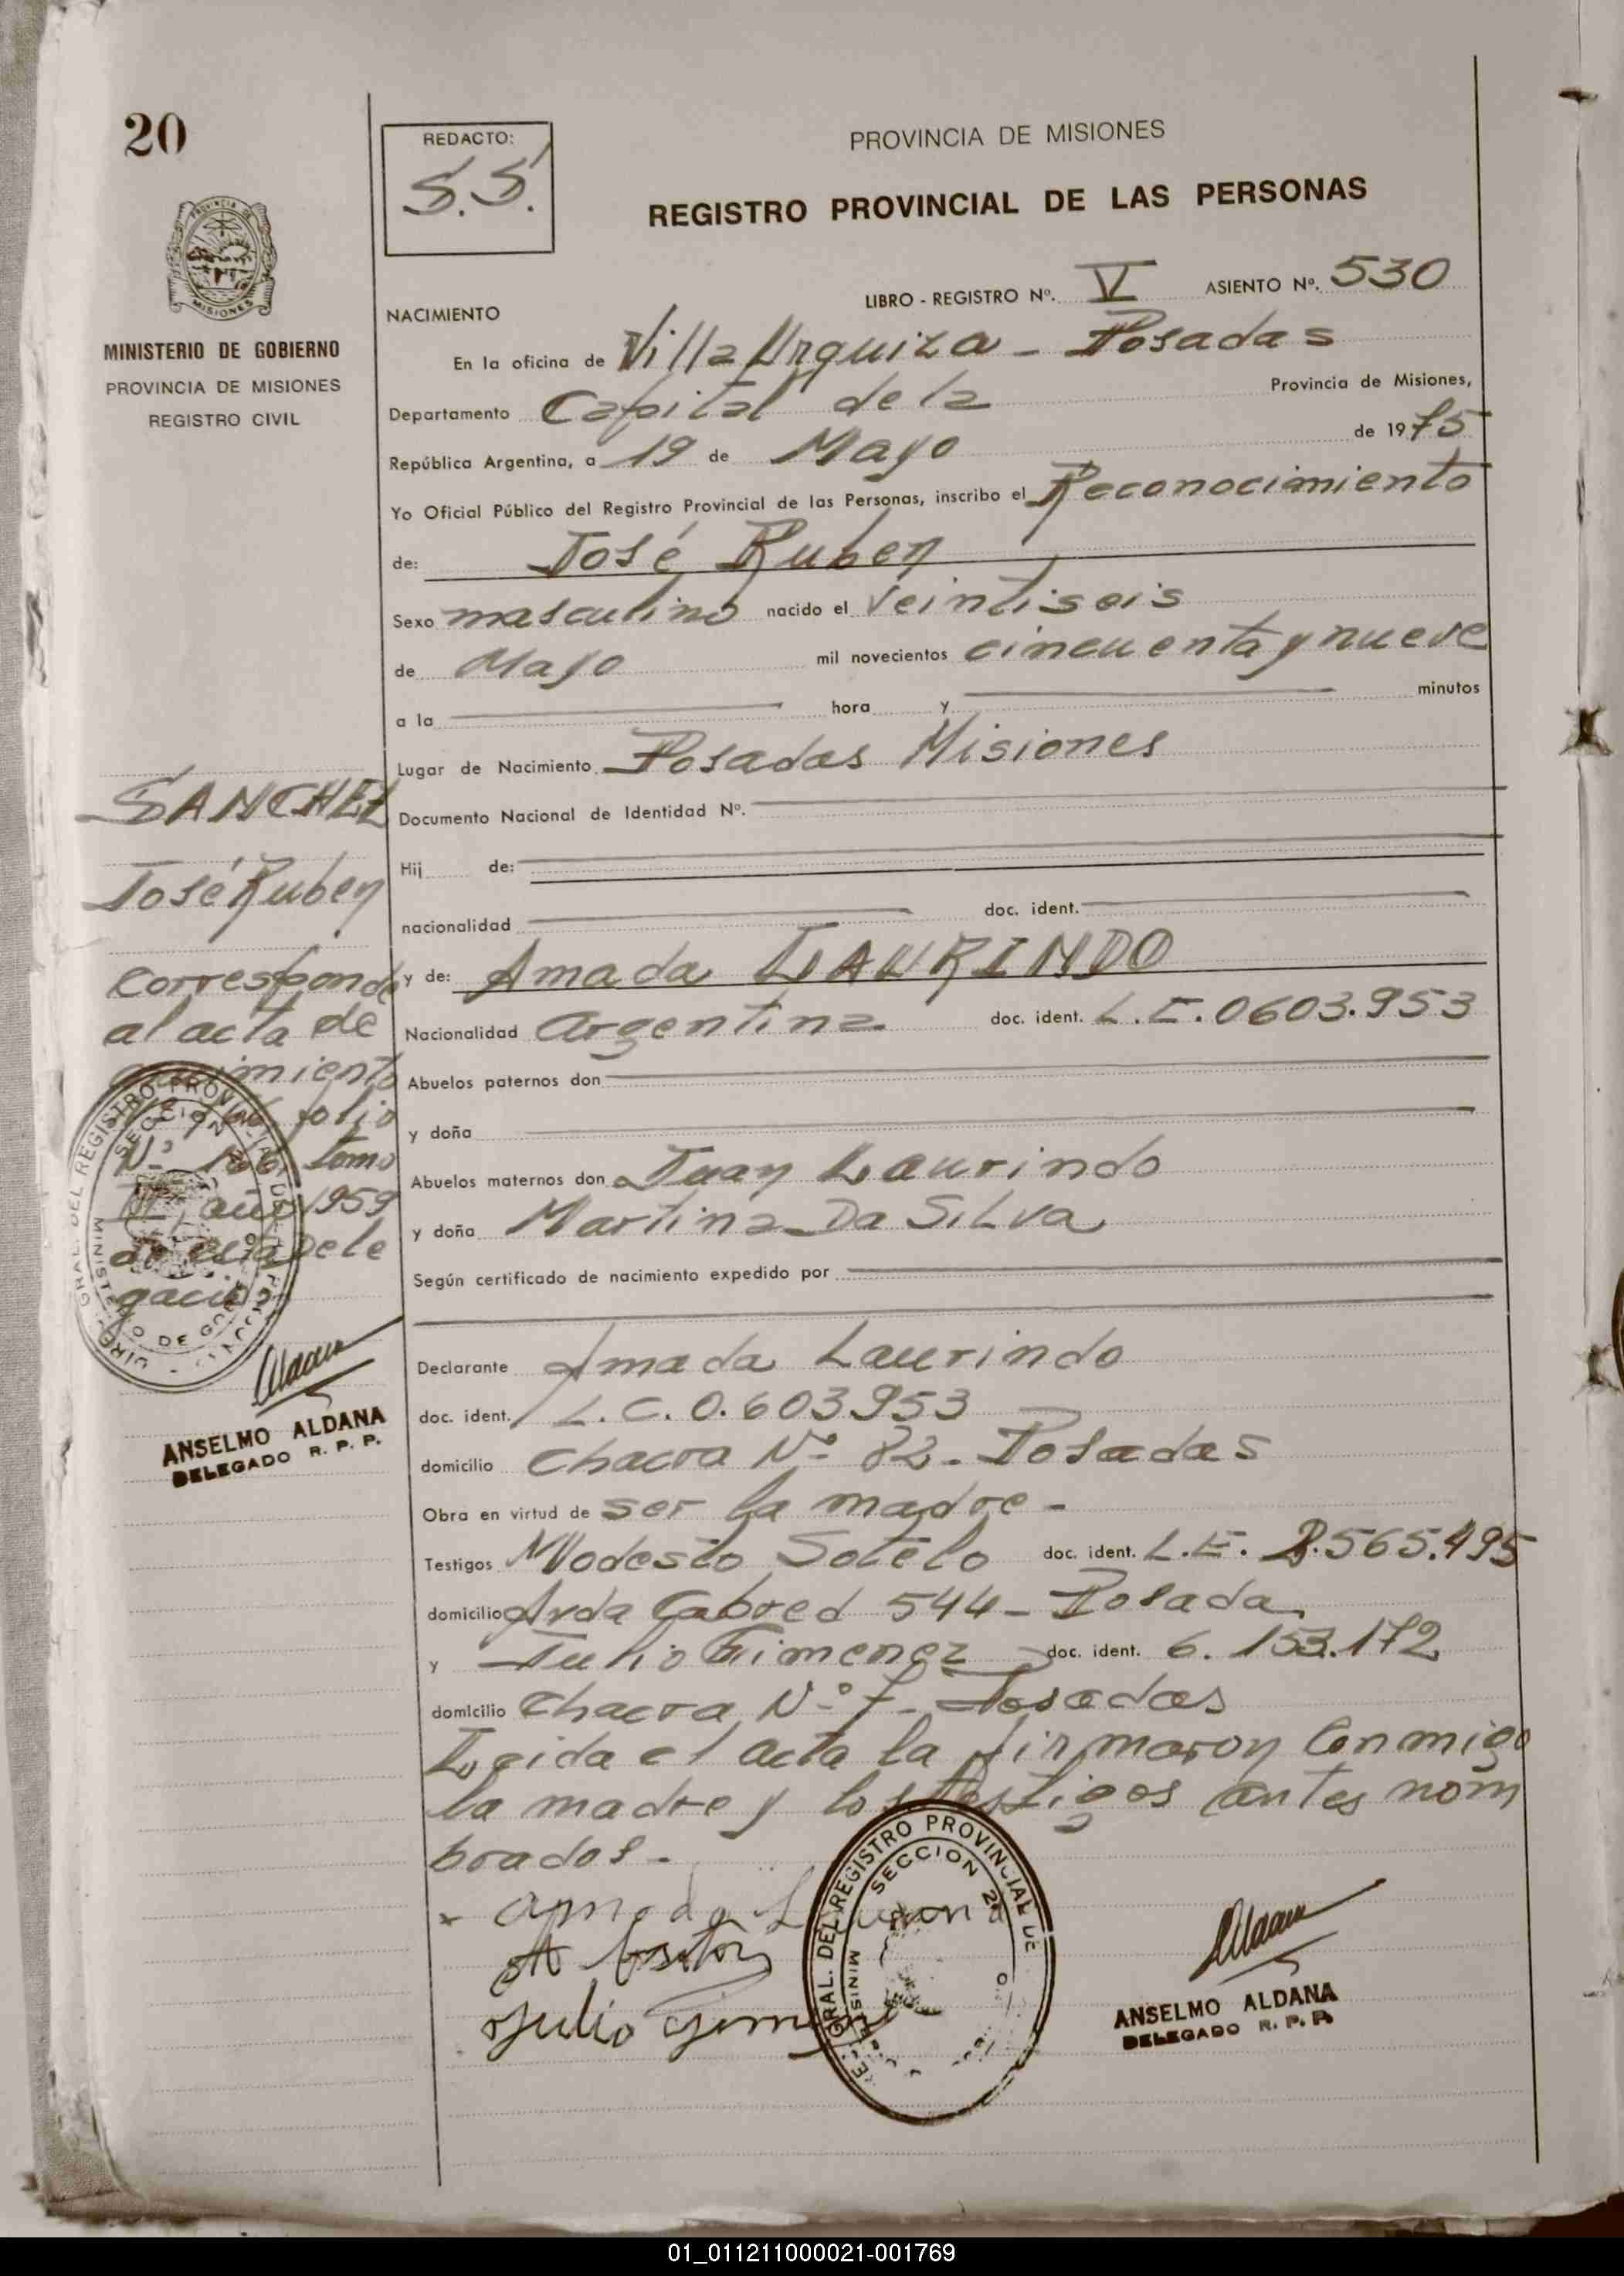 20
REDACTO:
S.S.
PROVINCIA DE MISIONES
REGISTRO PROVINCIAL DE LAS PERSONAS
LIBRO - REGISTRO Nº. V ASIENTO Nº. 530
MINISTERIO DE GOBIERNO
PROVINCIA DE MISIONES
REGISTRO CIVIL
NACIMIENTO
En la oficina de Villa Urquiza - Posadas
Departamento Capital de la Provincia de Misiones,
República Argentina, a 19 de Mayo de 1975
Yo Oficial Público del Registro Provincial de las Personas, inscribo el Reconocimiento
de: José Ruben
Sexo masculino nacido el veintiseis
de Mayo mil novecientos cincuenta y nueve
a la hora y minutos
Lugar de Nacimiento Posadas Misiones
Documento Nacional de Identidad Nº.
Hij de:
nacionalidad doc. ident.
y de: Amada LAURINDO
Nacionalidad argentina doc. ident. L.E. 0603.953
Abuelos paternos don
y doña
Abuelos maternos don Juan Laurindo
y doña Martina Da Silva
Según certificado de nacimiento expedido por
Declarante Amada Laurindo
doc. ident. L.C. 0.603953
domicilio Chacra Nº 82 - Posadas
Obra en virtud de ser la madre -
Testigos Modesto Sotelo doc. ident. L.E. 565.495
domicilio Avda Cabred 544 - Posada
y Julio Gimenez doc. ident. 6. 153.172
domicilio Chacra Nº 7 - Posadas
Leida el acta la firmaron Conmigo
la madre y los testigos antes nom
brados -
SANCHEZ
José Ruben
Corresponde
al acta de
folio
Nº 166, tomo
año 1959
de esta Dele
gación
ANSELMO ALDANA
DELEGADO R. P. P.
GRAL. DEL REGISTRO PROVINCIAL DE
SECCION
MINISTERIO DE GOB
Julio Gimenez
GRAL. DEL REGISTRO PROVINCIAL DE
SECCION 2
ANSELMO ALDANA
DELEGADO R. P. P.
01_011211000021-001769